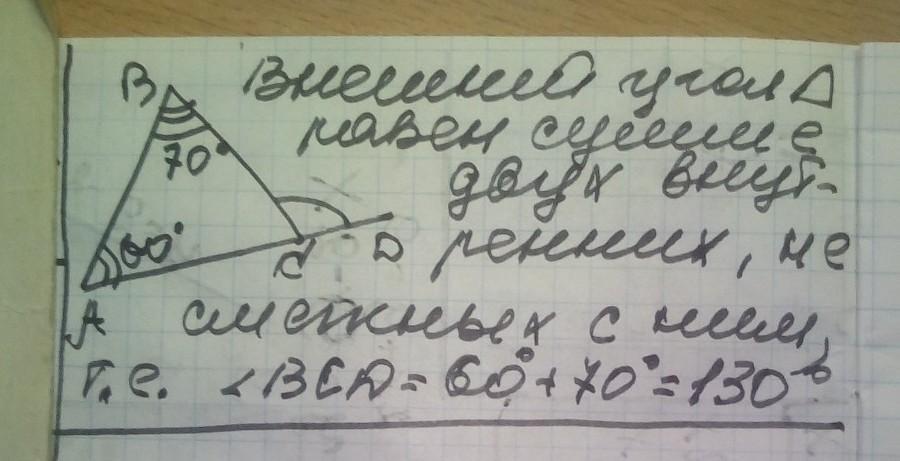 B Внешний угол Δ
70° равен сумме
двух внут-
60° C D ренних, не
A смежных с ним,
т.е. ∠BCD = 60° + 70° = 130°